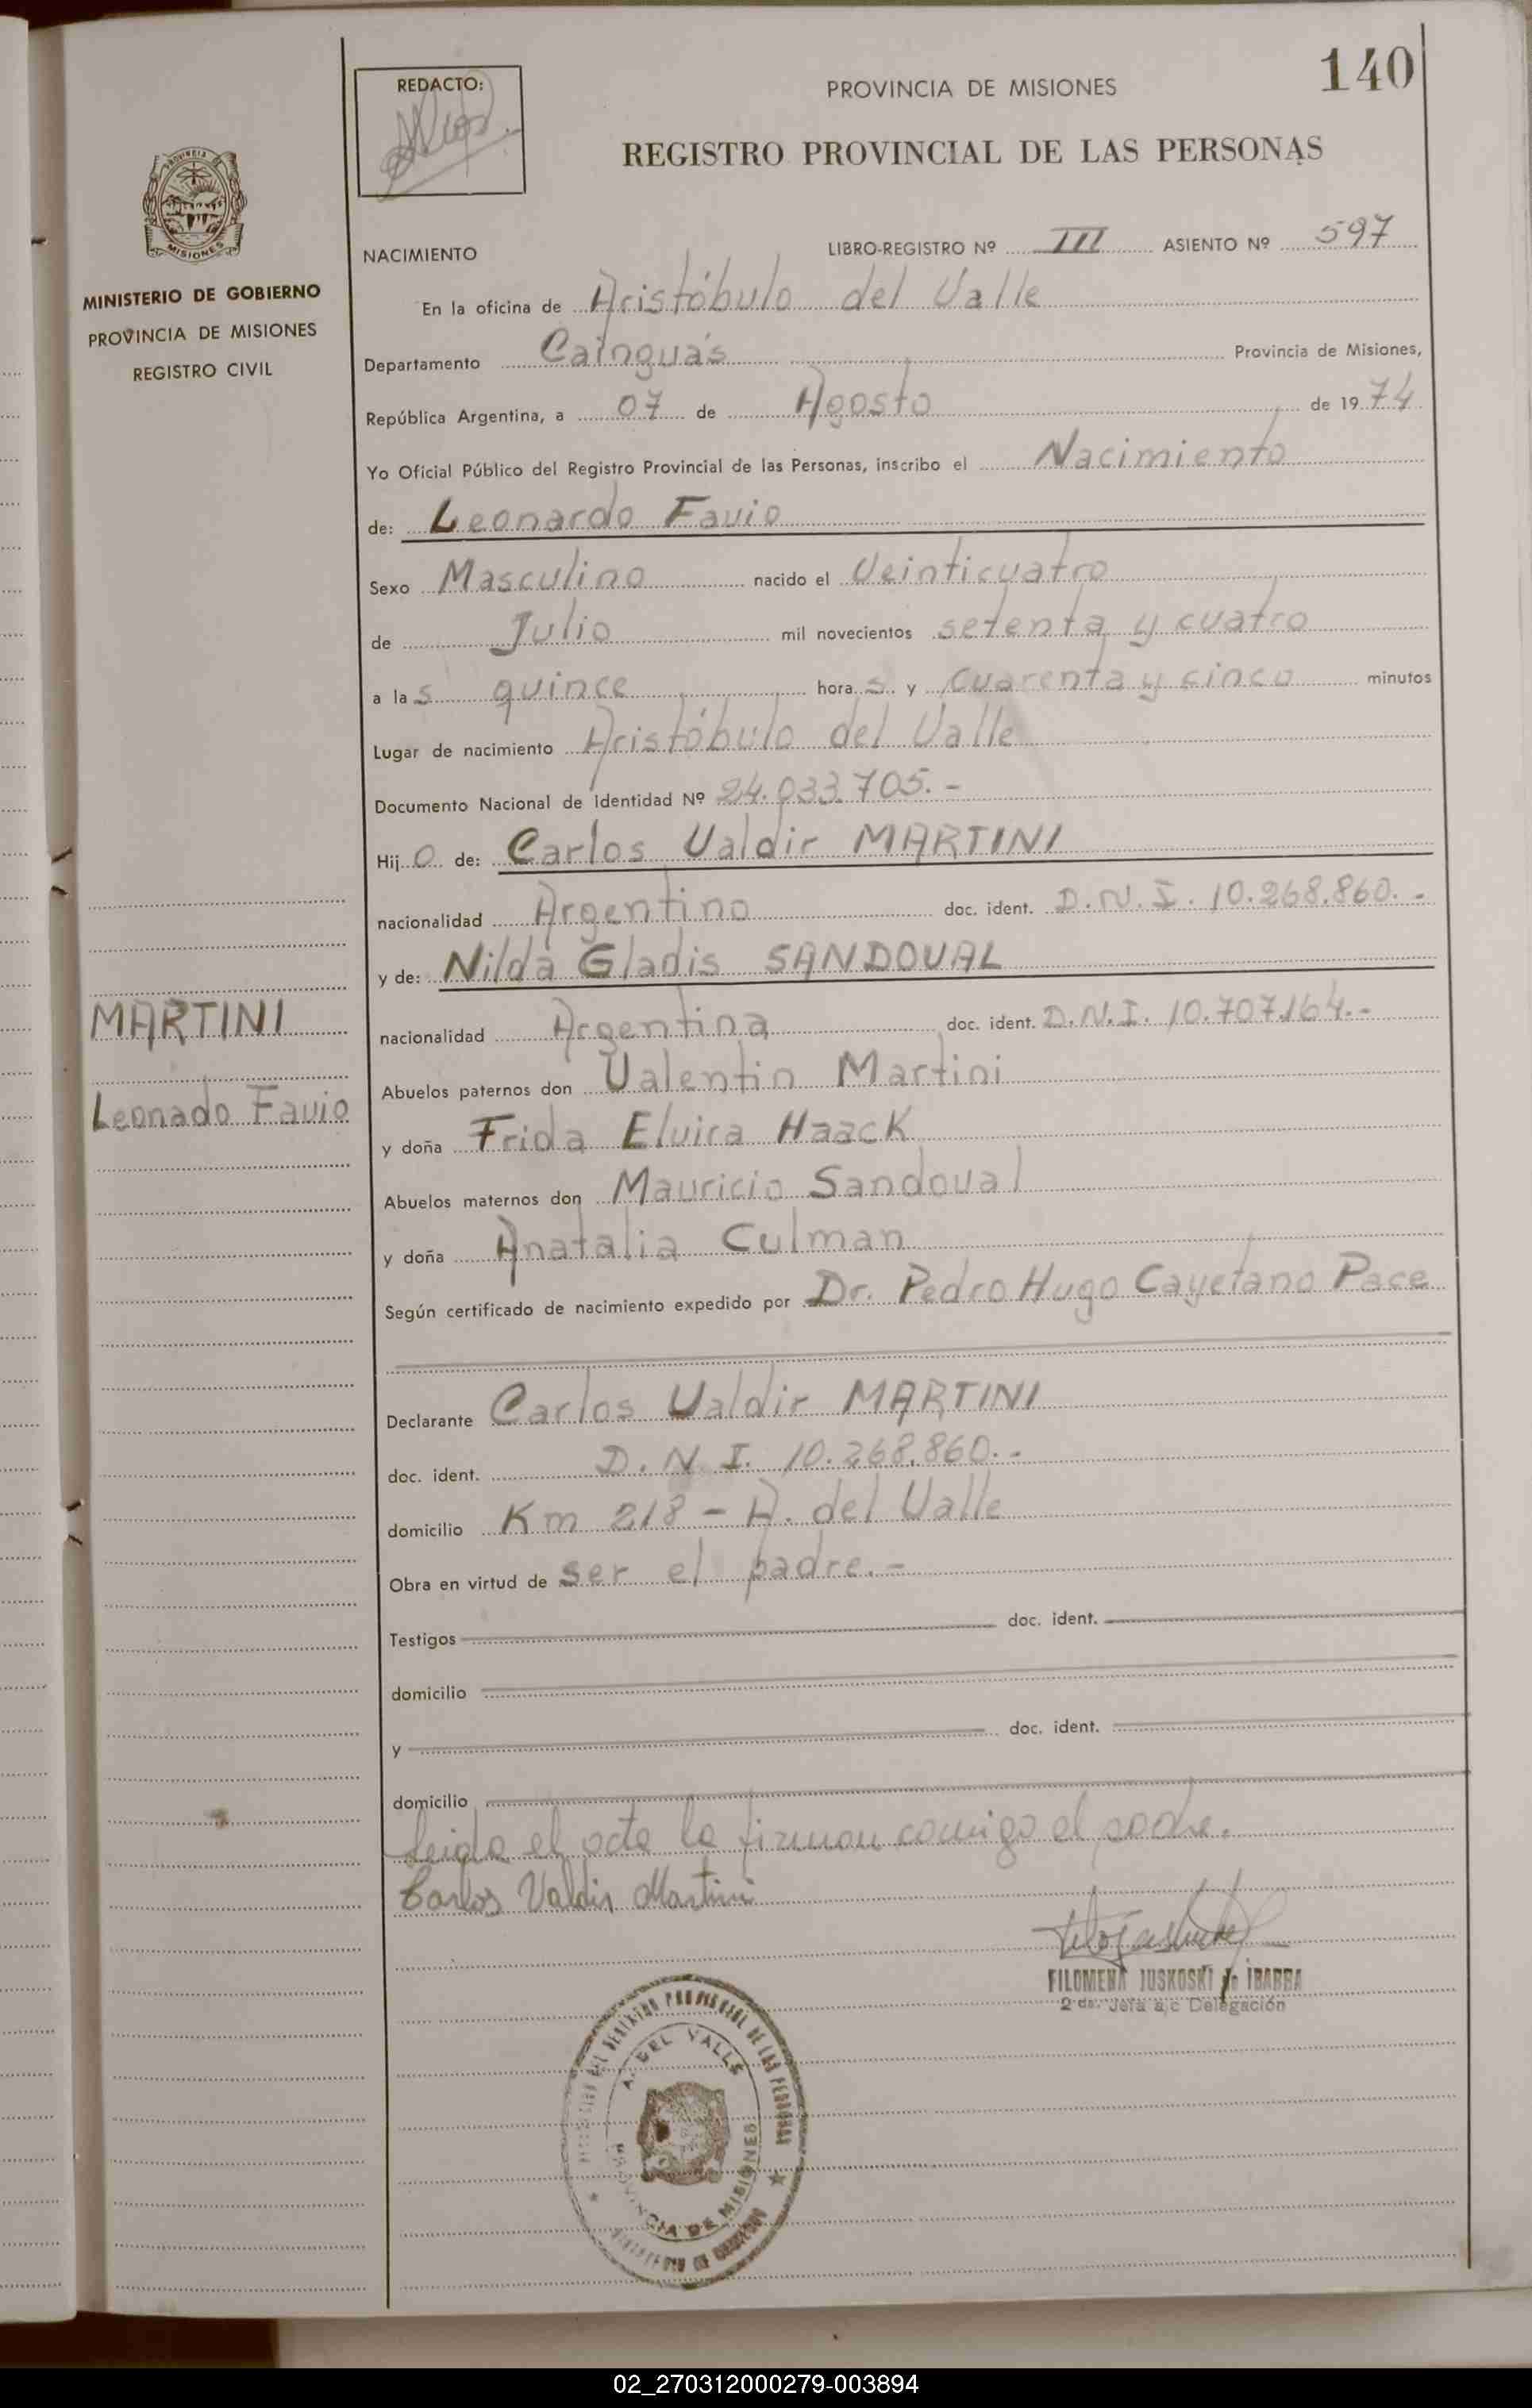 140
REDACTO:
PROVINCIA DE MISIONES
REGISTRO PROVINCIAL DE LAS PERSONAS
MISIONES
MINISTERIO DE GOBIERNO
PROVINCIA DE MISIONES
REGISTRO CIVIL
NACIMIENTO
LIBRO-REGISTRO Nº III ASIENTO Nº 597
En la oficina de Aristóbulo del Valle
Departamento Cainguás Provincia de Misiones,
República Argentina, a 07 de Agosto de 1974
Yo Oficial Público del Registro Provincial de las Personas, inscribo el Nacimiento
de: Leonardo Favio
Sexo Masculino nacido el Veinticuatro
de Julio mil novecientos setenta y cuatro
a las quince horas y cuarenta y cinco minutos
Lugar de nacimiento Aristóbulo del Valle
Documento Nacional de Identidad Nº 24.033.705.-
Hijo de: Carlos Valdir MARTINI
nacionalidad Argentino doc. ident. D.N.I. 10.268.860.-
y de: Nilda Gladis SANDOVAL
nacionalidad Argentina doc. ident. D.N.I. 10.707.164.-
MARTINI
Leonado Favio
Abuelos paternos don Valentin Martini
y doña Frida Elvira Haack
Abuelos maternos don Mauricio Sandoval
y doña Anatalia Culman
Según certificado de nacimiento expedido por Dr. Pedro Hugo Cayetano Pace
Declarante Carlos Valdir MARTINI
doc. ident. D.N.I. 10.268.860.-
domicilio Km 218 - A. del Valle
Obra en virtud de ser el padre.-
Testigos doc. ident.
domicilio
y doc. ident.
domicilio
Leida el acta la firman comigo el padre.
Carlos Valdir Martini
FILOMENA JUSKOSKI de IBARRA
2da. Jefa a/c Delegación
PROVINCIAL DE LAS PERSONAS
A. DEL VALLE
PROVINCIA DE MISIONES
MINISTERIO DE GOBIERNO
02_270312000279-003894